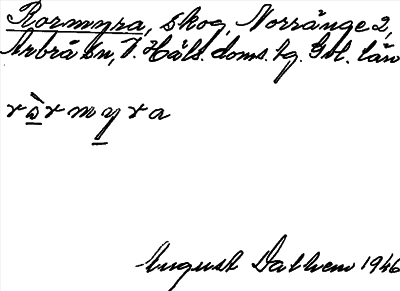 Rormyra, skog, Norränge 2,
Arbrå sn, V. Häls. doms. tg. Gvl. län
ròrmyra
August Dalhem 1946